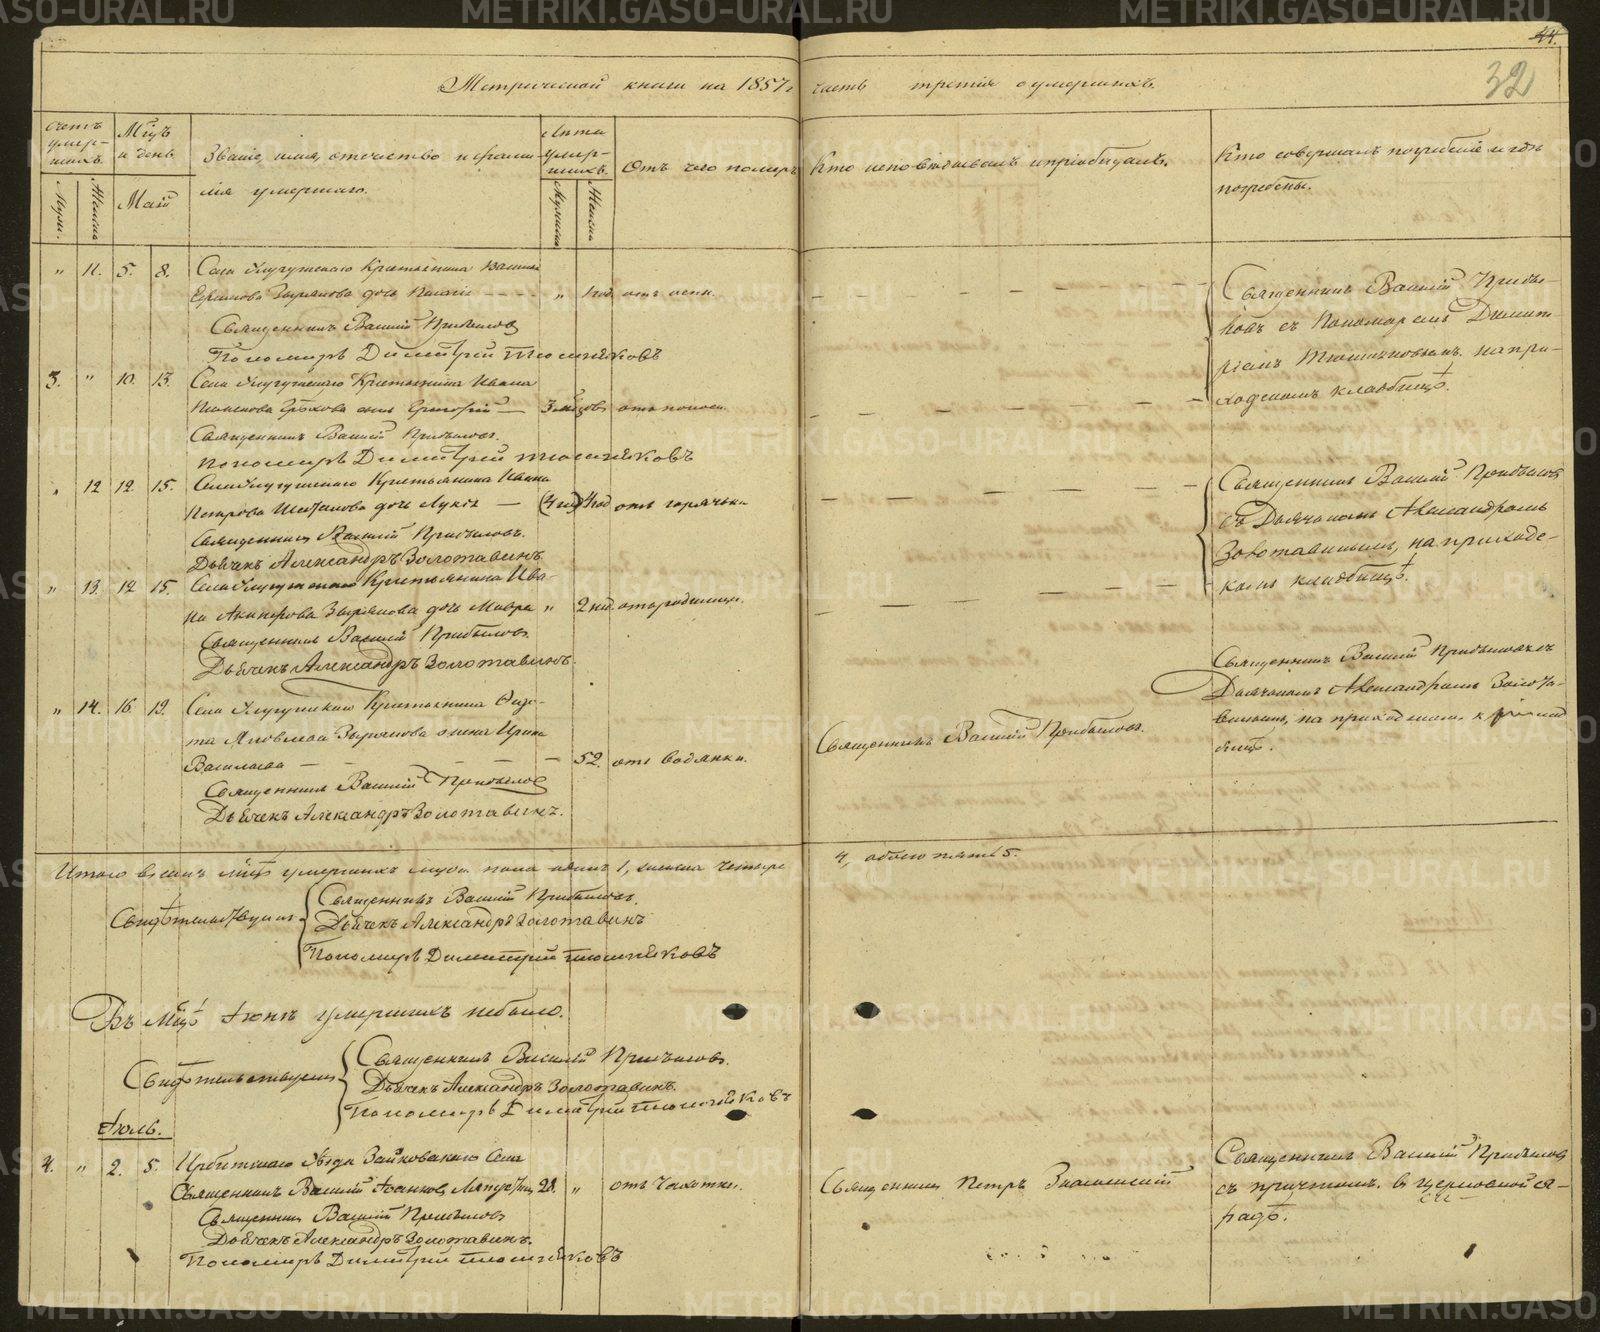 44.
32
Метрической книги на 1857 г.
часть третія о умершихъ.
Счетъ умер-шихъ.
Муж.
Женск.
Мцъ и день
Май
Званіе, имя, отчество и фами-
лія умершаго.
Лѣта умер-шихъ.
Мужеска
Женска
Отъ чего померъ
Кто исповѣдывалъ и пріобщалъ.
Кто совершалъ погребеніе и гдѣ
погребены.
" 11. 5. 8. Села Крестьянина Василья
Ефимова Зырянова дочь " 1 год. отъ оспы.
Священникъ Василій Прибылов
Пономарь Димитрій Тюшняковъ
Священникъ Василій Прибы-
ловъ съ Пономаремъ Димит-
ріемъ Тюшняковымъ. на при-
ходскомъ кладбищѣ.
3. " 10. 13. Села Крестьянина Ивана
сынъ Григорій — 3 мѣсцовъ отъ поноса.
Священникъ Василій Прибылов.
Пономарь Димитрій Тюшняковъ
" 12 12. 15. Села Крестьянина Ивана
Петрова дочь — 4 год отъ горячки
Священникъ Василій Прибыловъ.
Дьячекъ Александръ Золотавинъ
Священникъ Василій Прибыловъ
съ Дьячкомъ Александромъ
Золотавинымъ, на приходс-
комъ кладбищѣ.
" 13. 12 15. Села Крестьянина Ива-
на Зырянова дочь Мавра " 2 нед. отъ родимца.
Священникъ Василій Прибылов.
Дьячекъ Александръ Золотавинъ.
" 14. 16. 19. Села Крестьянина Ѳедо-
та Яковлева Зырянова жена Ирина
Васильева — — — — 52. отъ водянки.
Священникъ Василій Прибылов
Дьячекъ Александръ Золотавинъ.
Священникъ Василій Прибылов.
Священникъ Василій Прибыловъ съ
Дьячкомъ Александромъ Золота-
винымъ, на приходскомъ клад
бищѣ.
Итого въ семъ мцѣ умершихъ муж. пола одинъ 1, женска четыре
4, обоего пять 5.
Свидѣтельствуемъ
Священникъ Василій Прибылов.
Дьячекъ Александръ Золотавинъ
Пономарь Димитрій Тюшняковъ
Въ Мцѣ Іюнѣ умершихъ небыло.
Свидѣтельствуемъ
Священникъ Василій Прибылов.
Дьячекъ Александръ Золотавинъ.
Пономарь Димитрій Тюшняковъ
Іюль.
4. " 2. 5. Ирбитскаго Уѣзда Зайковскаго Села
Священникъ Василій Іоанновъ 28. " отъ Чахотки.
Священникъ Василій Прибылов
Дьячекъ Александръ Золотавинъ.
Пономарь Димитрій Тюшняковъ
Священникъ Петръ Знаменскій
Священникъ Василій Прибылов
съ причтомъ. в церковной о-
градѣ.
METRIKI.GASO-URAL.RU